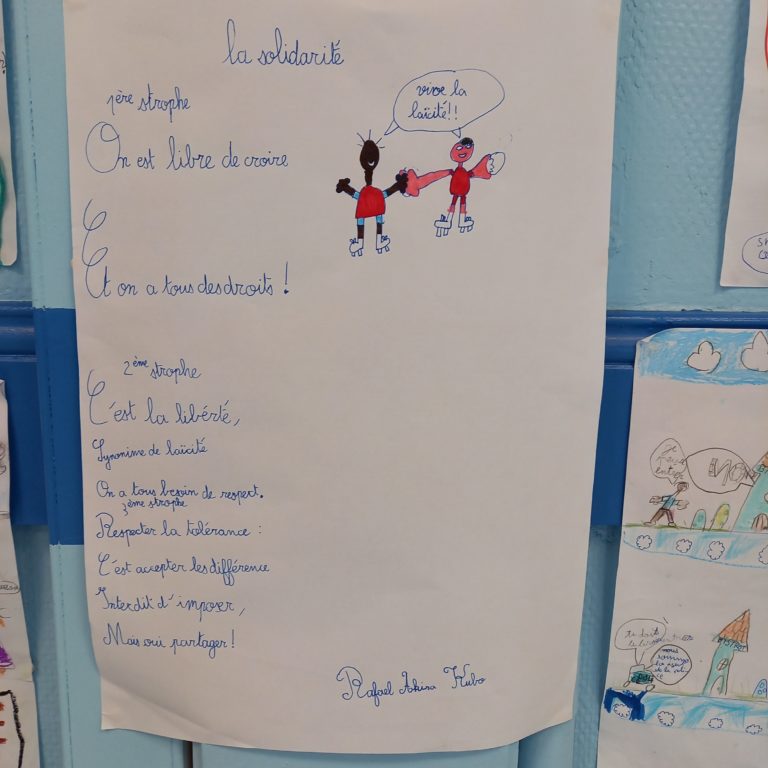 la solidarité
1ère strophe
vive la
laïcité!!
On est libre de croire
Et on a tous des droits !
2ème strophe
C'est la libérté,
Synonime de laïcité
On a tous besoin de respect.
3ème strophe
Respecter la tolérance :
C'est accepter les différence
Interdit d'imposer,
Mais oui partager!
Rafael Akira Kubo
je
entrer
NON
nous